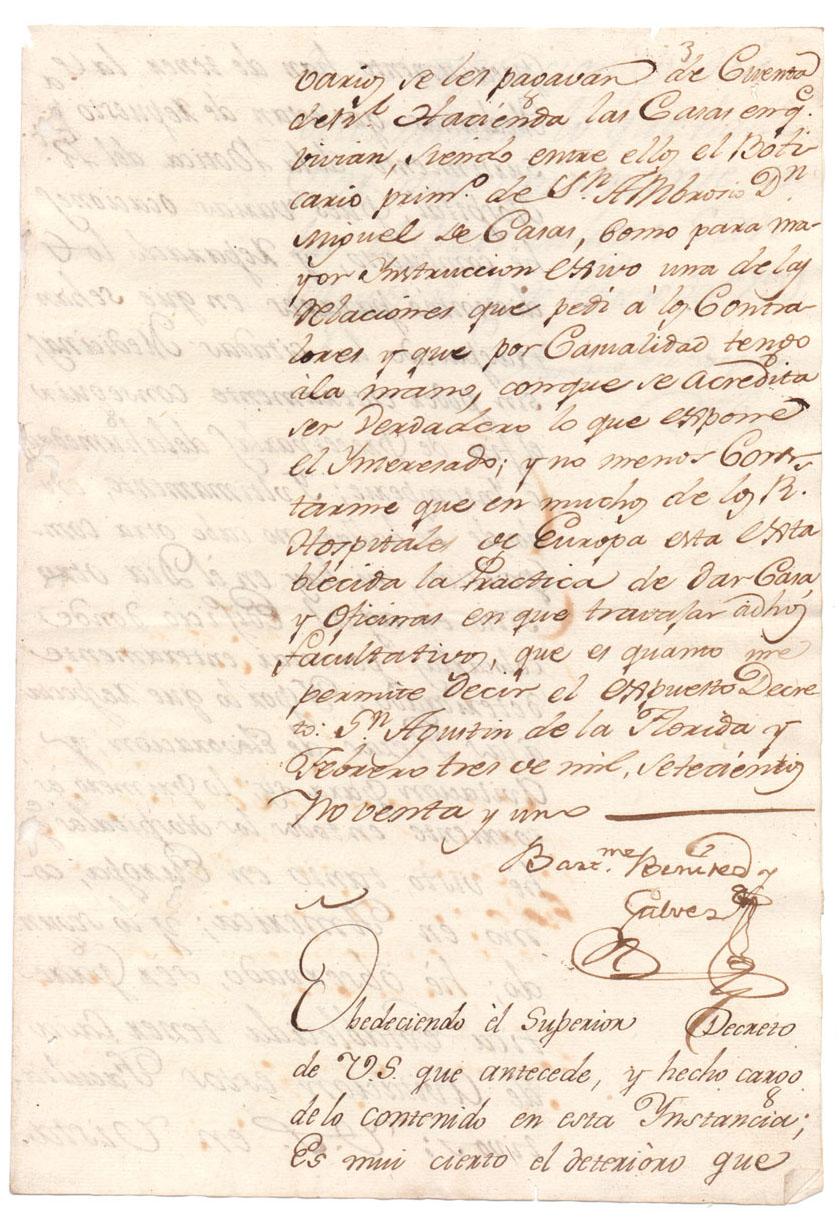 varios se les pagavan de Cuenta
de Rl. Hacienda las Casas en q.e
vivian, siendo entre ellos el Boti-
cario prim.o de Sn. Ambrosio Dn.
Miguel de Casas, como para ma-
yor Instruccion exivo una de las
Relaciones que pedi á los Contra-
lores y que por Casualidad tengo
ála mano, conque se acredita
ser verdadero lo que expone
el Ynteresado; y no menos Cons-
tarme que en muchos de los R.
Hospitales de Europa esta esta
blecida la Practica de dar Casa
y oficinas en que travajar á dhos
facultativos, que es quanto me
permite decir el expuesto Decre-
to. Sn. Agustin de la Florida y
Febrero tres de mil, setecientos
Noventa y uno
Bart.me Benites y
Galvez
Obedeciendo él Superior Decreto
de V.S. que antecede, y hecho cargo
de lo contenido en esta Ynstancia;
Es mui cierto el deterióro que